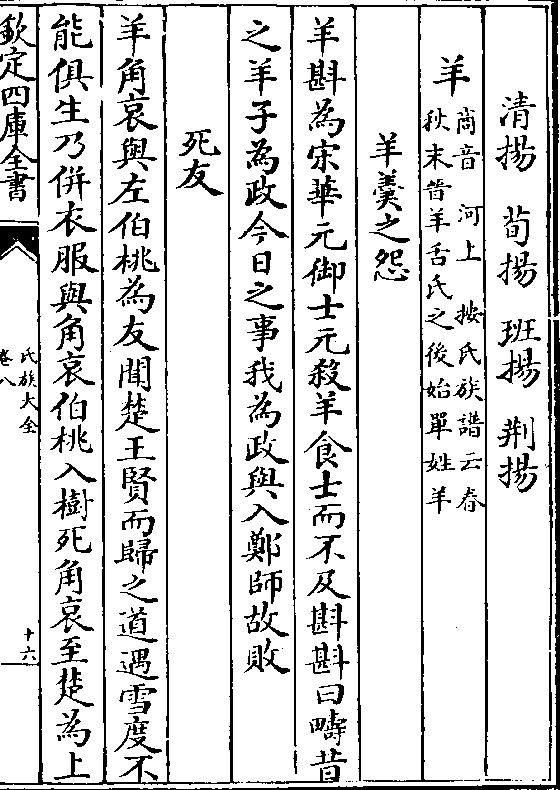 清揚 荀揚 班揚 荆揚
羊 商音 河上 按氏族譜云春
秋末晉羊舌氏之後始單姓羊
羊羹之怨
羊斟為宋華元御士元殺羊食士而不及斟斟曰疇昔
之羊子為政今日之事我為政與入鄭師故敗
死友
羊角哀與左伯桃為友聞楚王賢而歸之道遇雪度不
能俱生乃併衣服與角哀伯桃入樹死角哀至楚為上
欽定四庫全書
氏族大全
卷八
十六